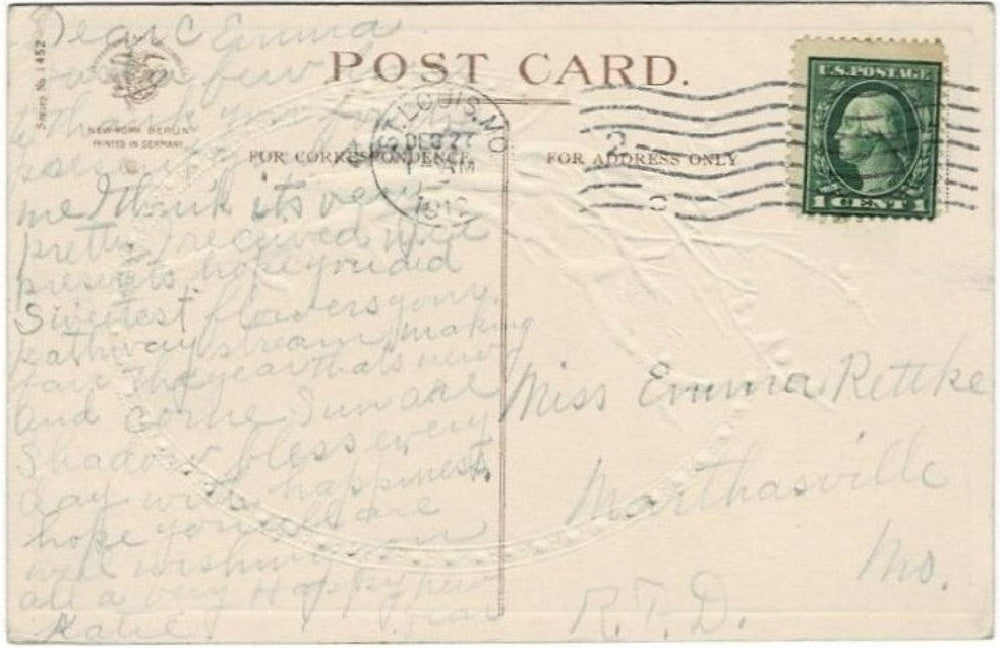 Dear C Emma
POST CARD.
Series No. 1452
NEW YORK BERLIN
PRINTED IN GERMANY
FOR CORRESPONDENCE,
FOR ADDRESS ONLY
ST. LOUIS, MO
DEC 27
AM
2
U.S. POSTAGE
1 CENT 1
a few
to thank you for
me I think its very
pretty I received nice
presents, hope you did
Sweetest flowers your
pathway stream, making
fair the year thats new
and come Sun and
Shadow bless every
day with happiness,
hope you all are
well wishing you
all a very Happy new
year
Katie
Miss Emma Rettke
Marthasville
Mo.
R.F.D.